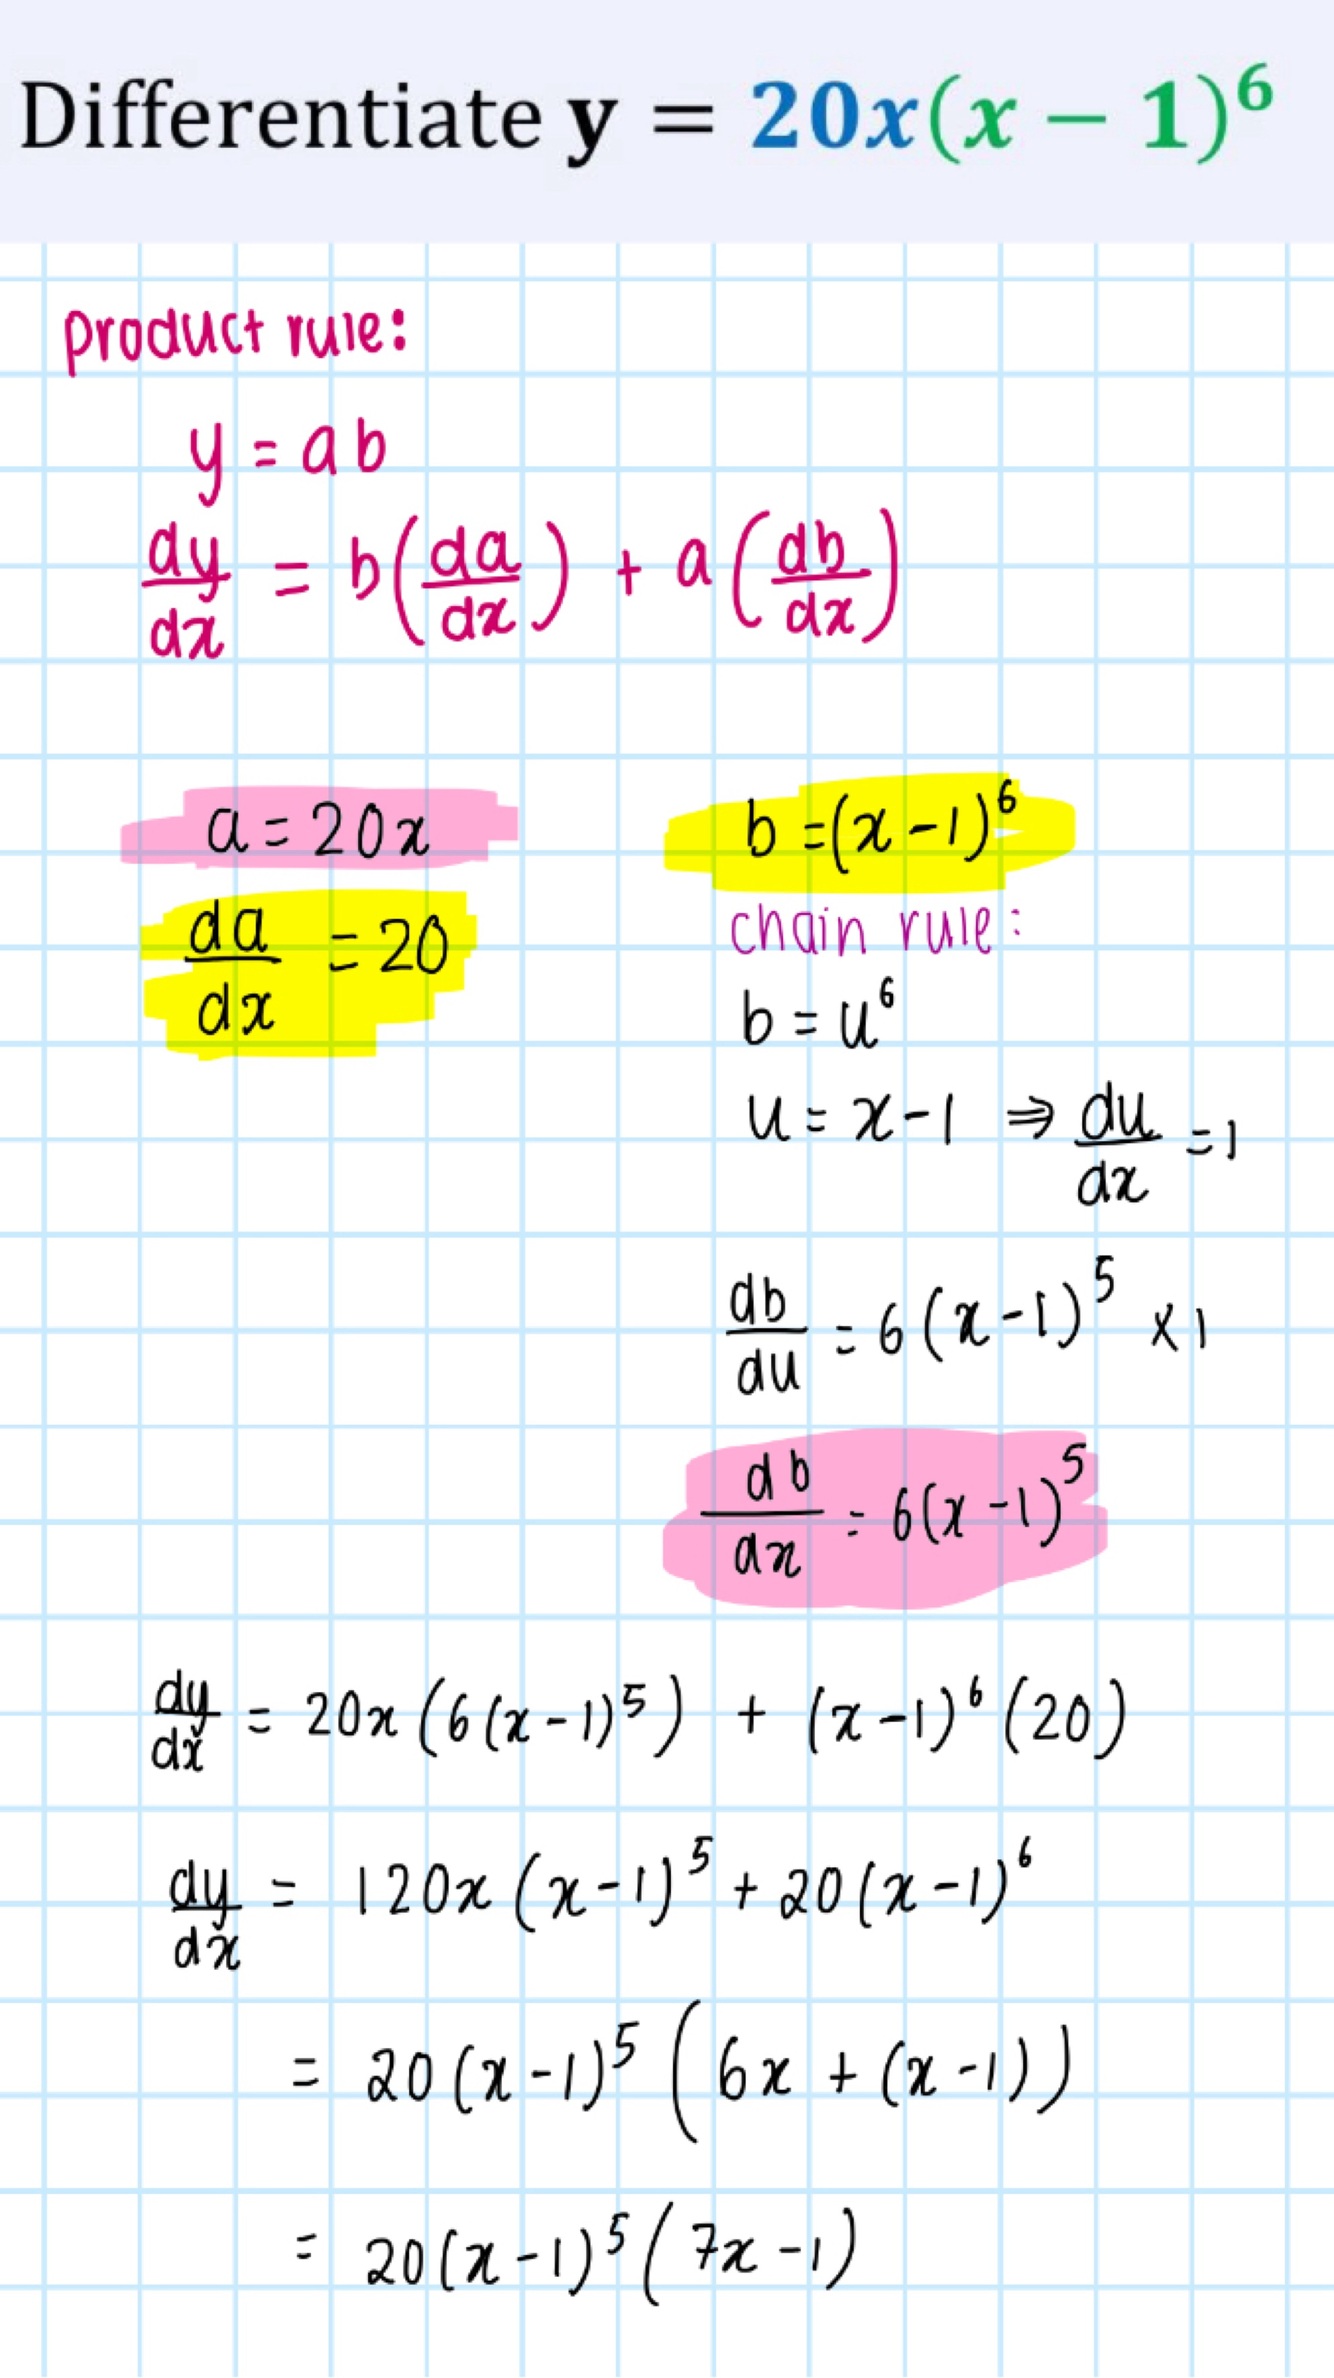 Differentiate y = 20x(x − 1)⁶
product rule:
y = ab
dy/dx = b(da/dx) + a(db/dx)
a = 20x
da/dx = 20
b = (x − 1)⁶
chain rule:
b = u⁶
u = x − 1 ⇒ du/dx = 1
db/du = 6(x − 1)⁵ × 1
db/dx = 6(x − 1)⁵
dy/dx = 20x(6(x − 1)⁵) + (x − 1)⁶(20)
dy/dx = 120x(x − 1)⁵ + 20(x − 1)⁶
= 20(x − 1)⁵(6x + (x − 1))
= 20(x − 1)⁵(7x − 1)